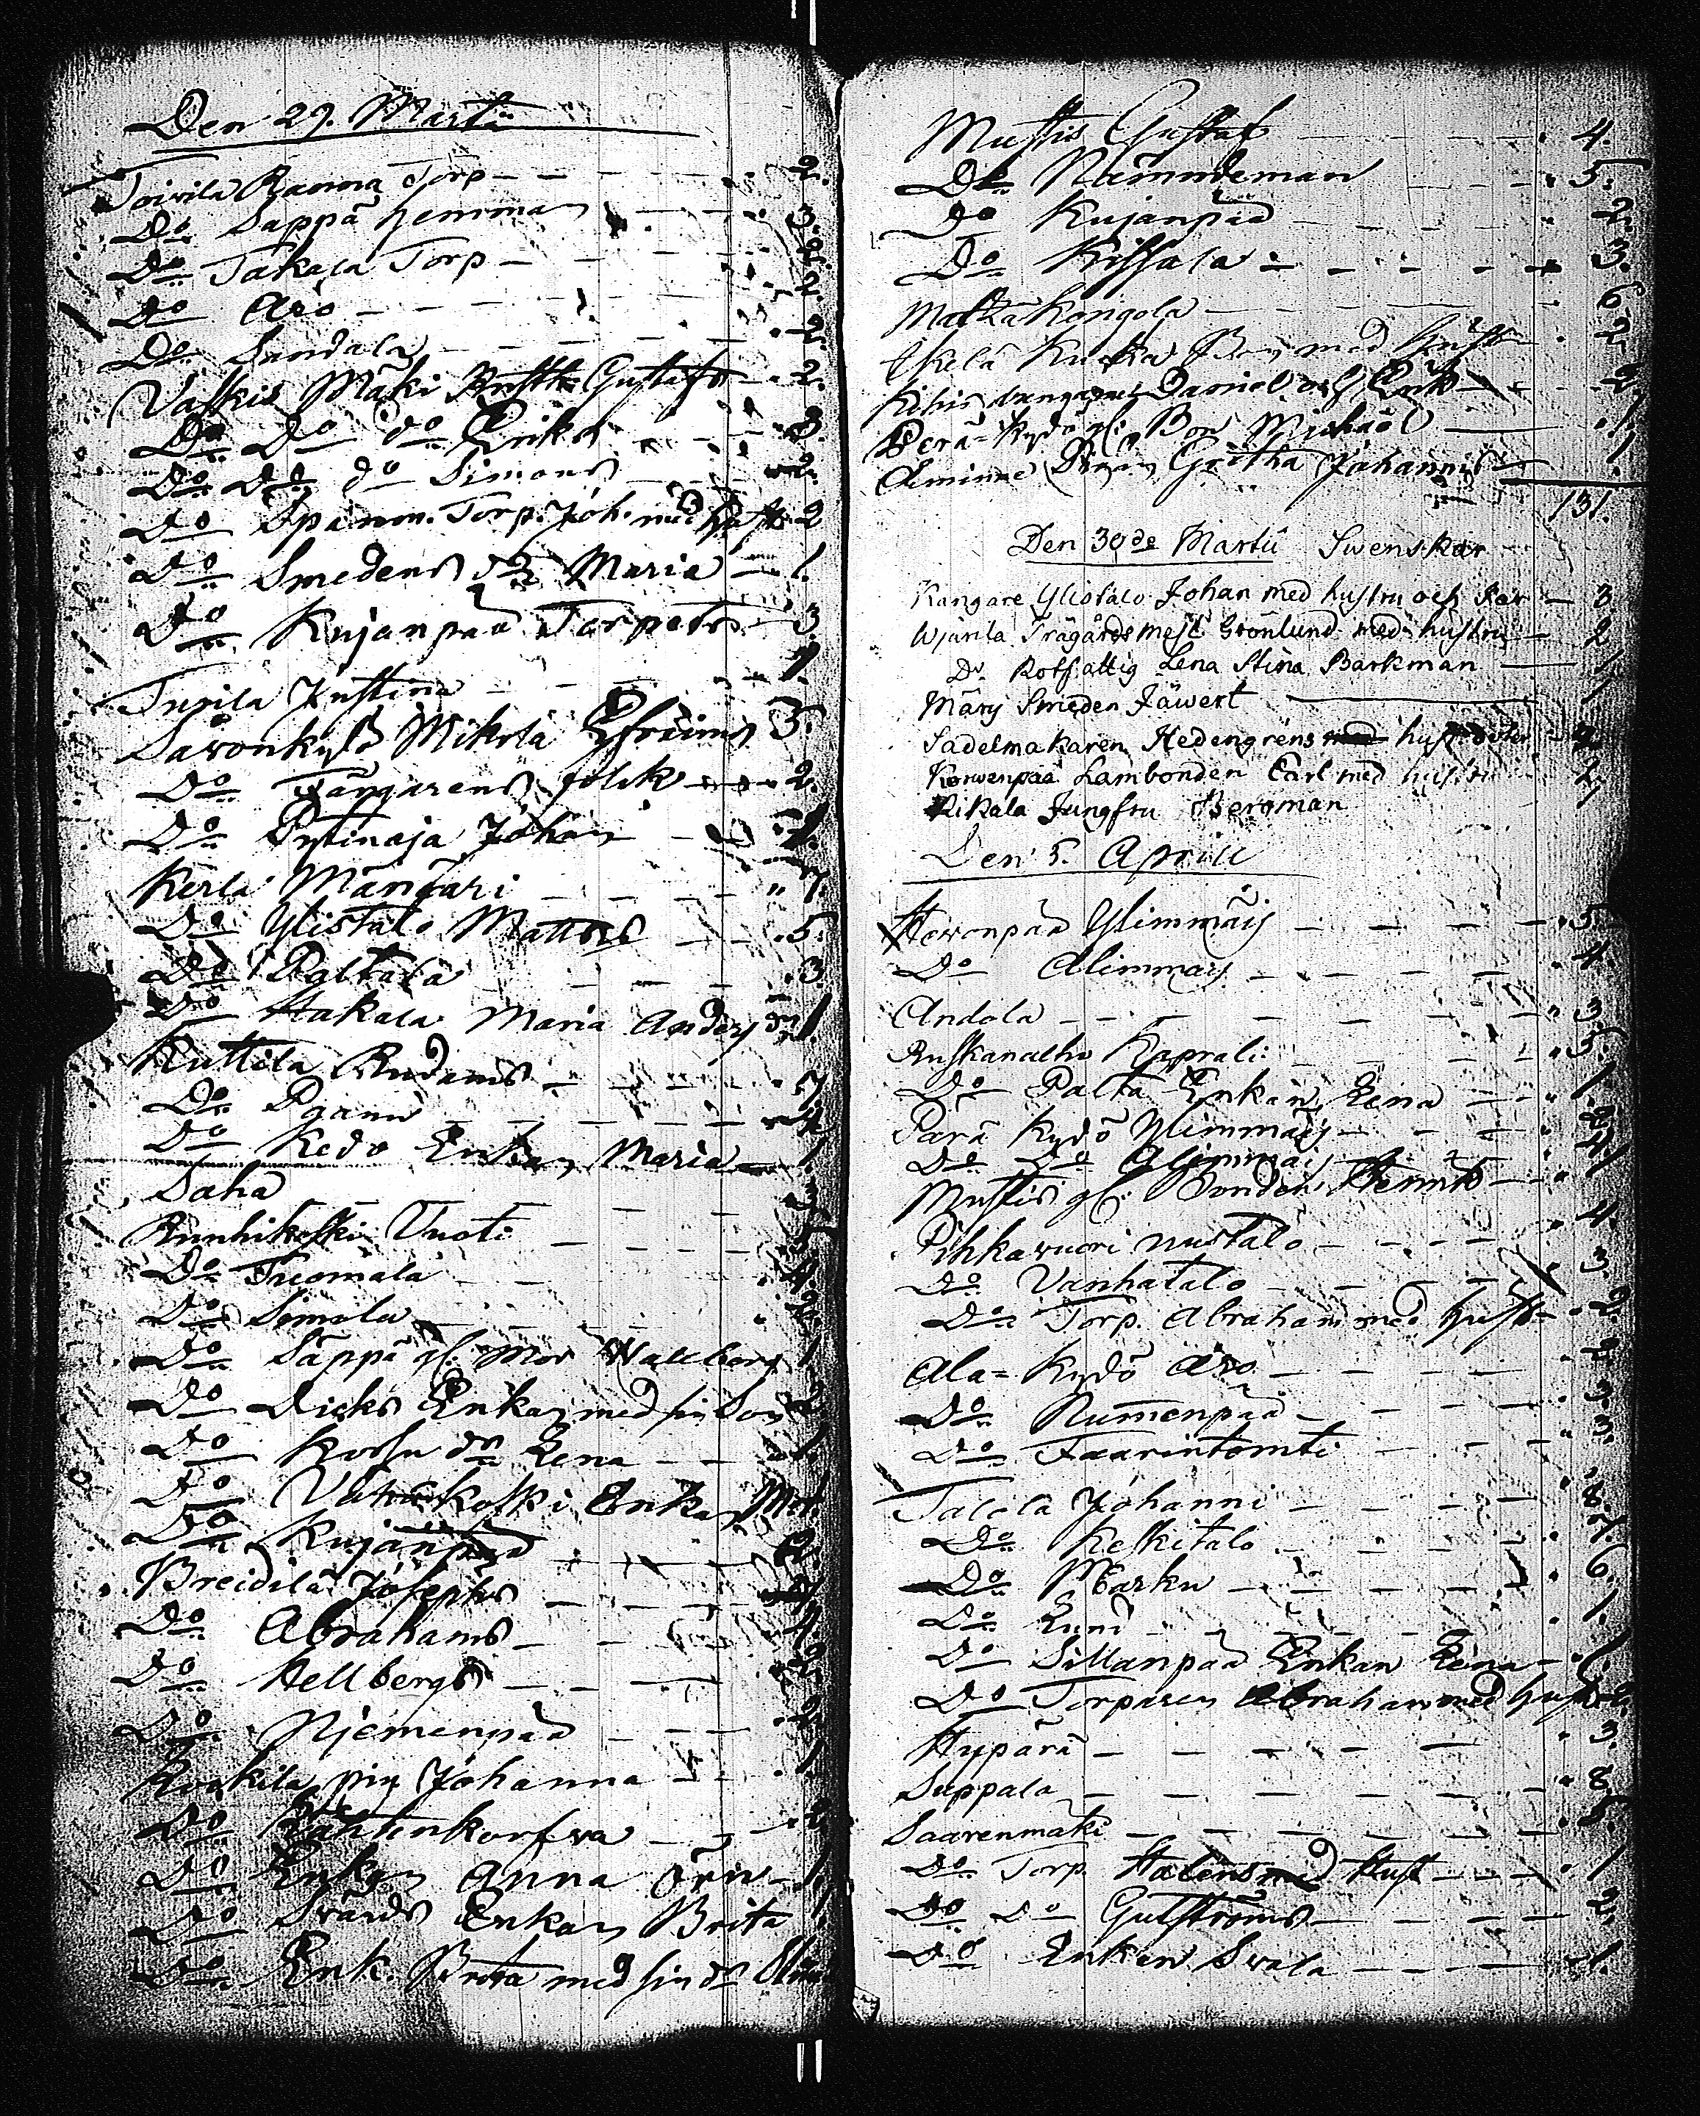 Den 29. Martii
Toivila Ranna Torp 2.
Do Sappä hemman 3.
Do Takala Torp 2.
Do Aro 2.
Do Sundala 2.
Vaskis Mäki Rusth. Gustafs 2.
Do Do do Eriks 3.
Do Do do Simons 2.
Do Spanm. Torp. Joh. med hust 2
Do Smedens dr Maria 1.
Do Kujanpää Torpets 3.
Tupila Justina 1.
Sawonkylä Mikola Efraims 3.
Do Tångarens folck 2.
Do Pytinaja Johan 1.
Kerla Mäntäri 7.
Do Ylistalo Mattses 5.
Do Paltala 3.
Do Hakala Maria Anders dr 1.
Kuttila Rudams 7
Do Pganu 4
Do Kedo Enkan Maria 1.
Saha 3
Ruuhikoski Tuoti
Do Tuomala 4.
Do Simola 2.
Do Säppä gl. Mor Wallborg 1
Do Dicks Enkan med sin Son 2
Do Kossu dr Lena 1
Do Vähäkoski Enkan
Do Kujanpää 2.
Breidilä Josephs
Do Abrahams 4.
Do Hellbergs 2.
Do Niemenpää 2.
Kookila pig Johanna 1.
Do Kärtinkorfwa
Do Enkan Anna Örn 1.
Do Svärds Enkan Brita 1.
Do Enk. Brita med sin dr
Mustis Gustaf 4.
Do Nämndeman 5.
Do Kujanpää 2.
Do Kissala 3.
Matka Kongola 6.
Ikelä Kucka Bon med hust 2.
Kihis Daniel och Erik 2
Perä-Kydö gl. Bon Michaël 1.
Gretha Johannis 1.
131.
Den 30de Martii Swenskar
Kangare Ylistalo Johan med hustru och Far 3.
Wjärila Trägårdsmest Grönlund med hustru 2
Do Rotfattig Lena Stina Barkman 1
Märy Smeden Jäwert 1
Sadelmakaren Hedengréns hust doter 2
Korwenpää Lambonden Carl med hustru 2
Rikala Jungfru Bergman 1
Den 5. Aprill
Hewonpää Ylimmäij 5
Do Alimmaij 4.
Andola 3.
Ruskanalho Kaprali 5.
Do Palta Enkan Lena 1.
Pärä Kydö Ylimmäij 8.
Do Do Alimmäij 4.
Mustis gl. Bonden Henrik 1
Pihkawuori Uustalo 4.
Do Vanhatalo 3.
Do Torp. Abraham med hust 2.
Ala-Kydö Aro 2.
Do Numenpää 3.
Do Faarintomti 3.
Talola Johanni 8.
Do Keskitalo 7.
Do Marku 6.
Do Lund 1.
Do Sillanpää Enkan Lena 1.
Do Torparen Abraham med hust 2.
Hypärä 3.
Suppala 8.
Saarenmäki 5.
Do Torp. Halens med Hust 1
Do Do Gutströms 2.
Do Enkan Swala 1.